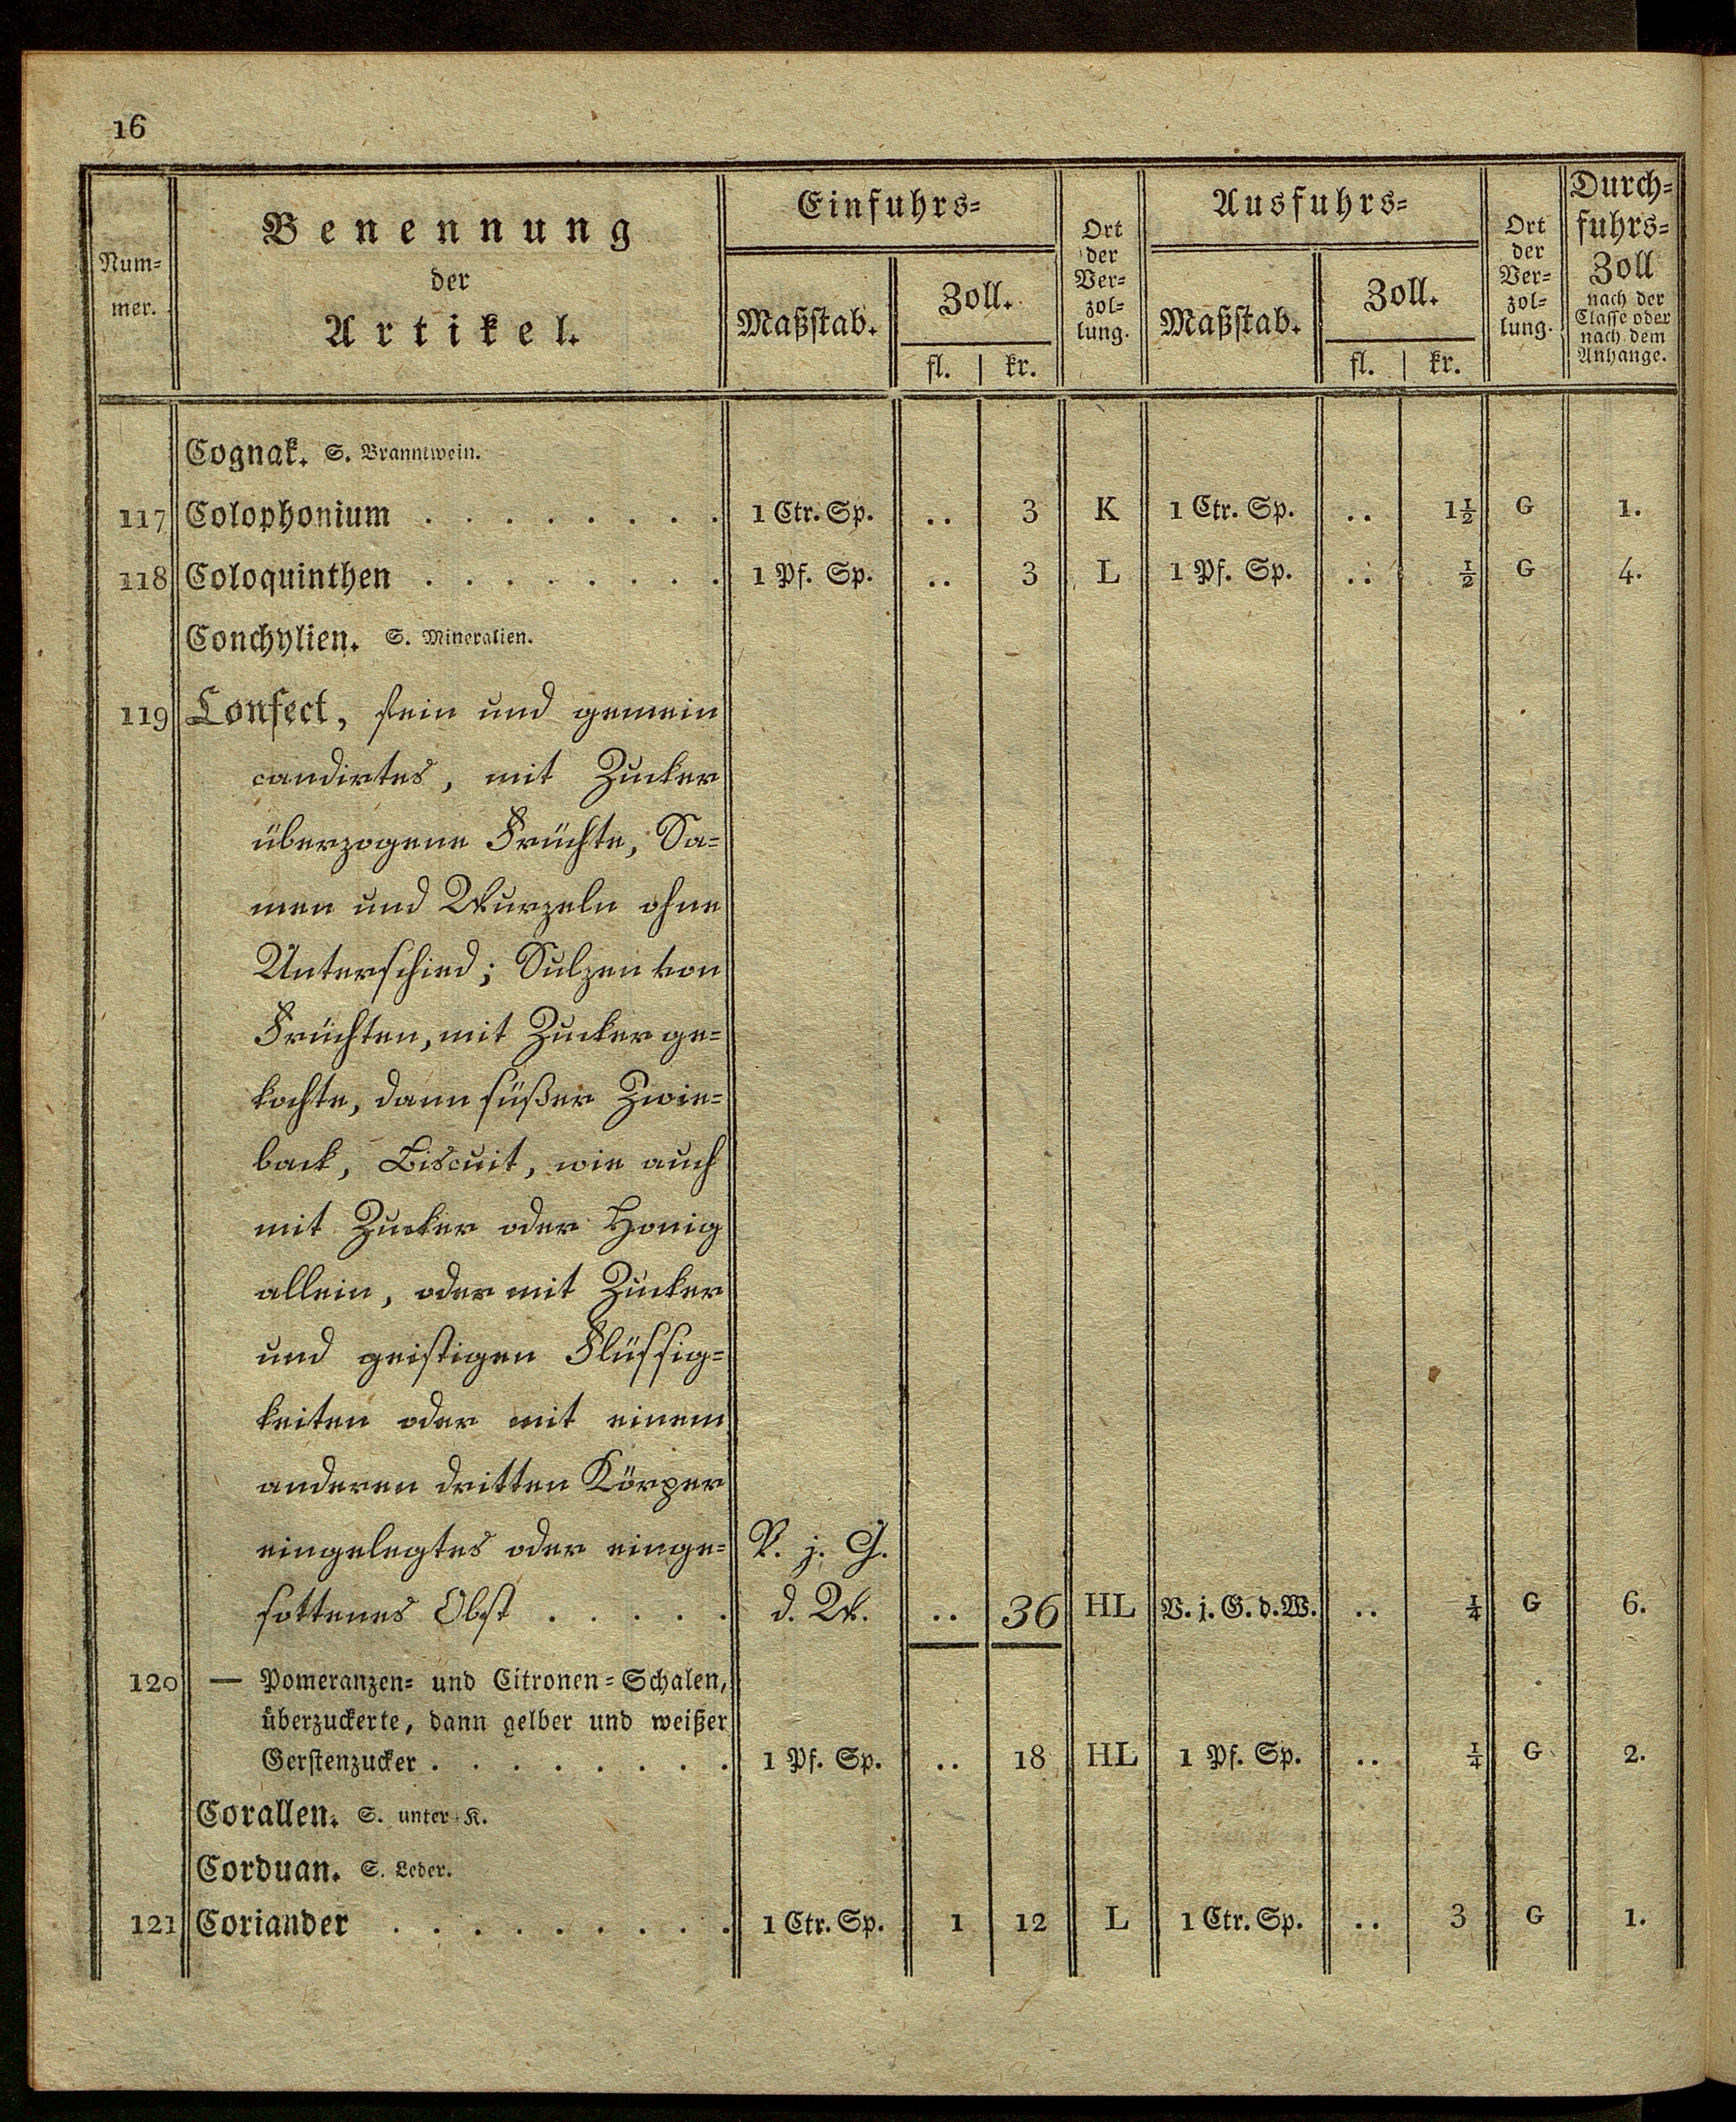 16
Num-
mer.
Benennung
der
Artikel.
Einfuhrs-
Maßstab.
Zoll.
fl. | kr.
Ort
der
Ver-
zol-
lung.
Ausfuhrs-
Maßstab.
Zoll.
fl. | kr.
Ort
der
Ver-
zol-
lung.
Durch-
fuhrs-
Zoll
nach der
Classe oder
nach dem
Anhange.
Cognak. S. Branntwein.
117 Colophonium . . . . . . . . 1 Ctr. Sp. .. 3 K 1 Ctr. Sp. .. 1½ G 1.
118 Coloquinthen . . . . . . . . 1 Pf. Sp. .. 3 L 1 Pf. Sp. .. ½ G 4.
Conchylien. S. Mineralien.
119 Confect, fein und gemein
candirtes, mit Zucker
überzogene Früchte, Sa-
men und Wurzeln ohne
Unterschied; Sulzen von
Früchten, mit Zucker ge-
kochte, dann süßer Zwie-
back, Biscuit, wie auch
mit Zucker oder Honig
allein, oder mit Zucker
und geistigen Flüssig-
keiten oder mit einem
anderen dritten Körper
eingelegtes oder einge- V. j. G.
sottenes Obst . . . . . d. W. .. 36 HL V. j. G. d. W. .. ¼ G 6.
120 — Pomeranzen- und Citronen-Schalen,
überzuckerte, dann gelber und weißer
Gerstenzucker . . . . . . . . 1 Pf. Sp. .. 18 HL 1 Pf. Sp. .. ¼ G 2.
Corallen. S. unter K.
Corduan. S. Leder.
121 Coriander . . . . . . . . . 1 Ctr. Sp. 1 12 L 1 Ctr. Sp. .. 3 G 1.